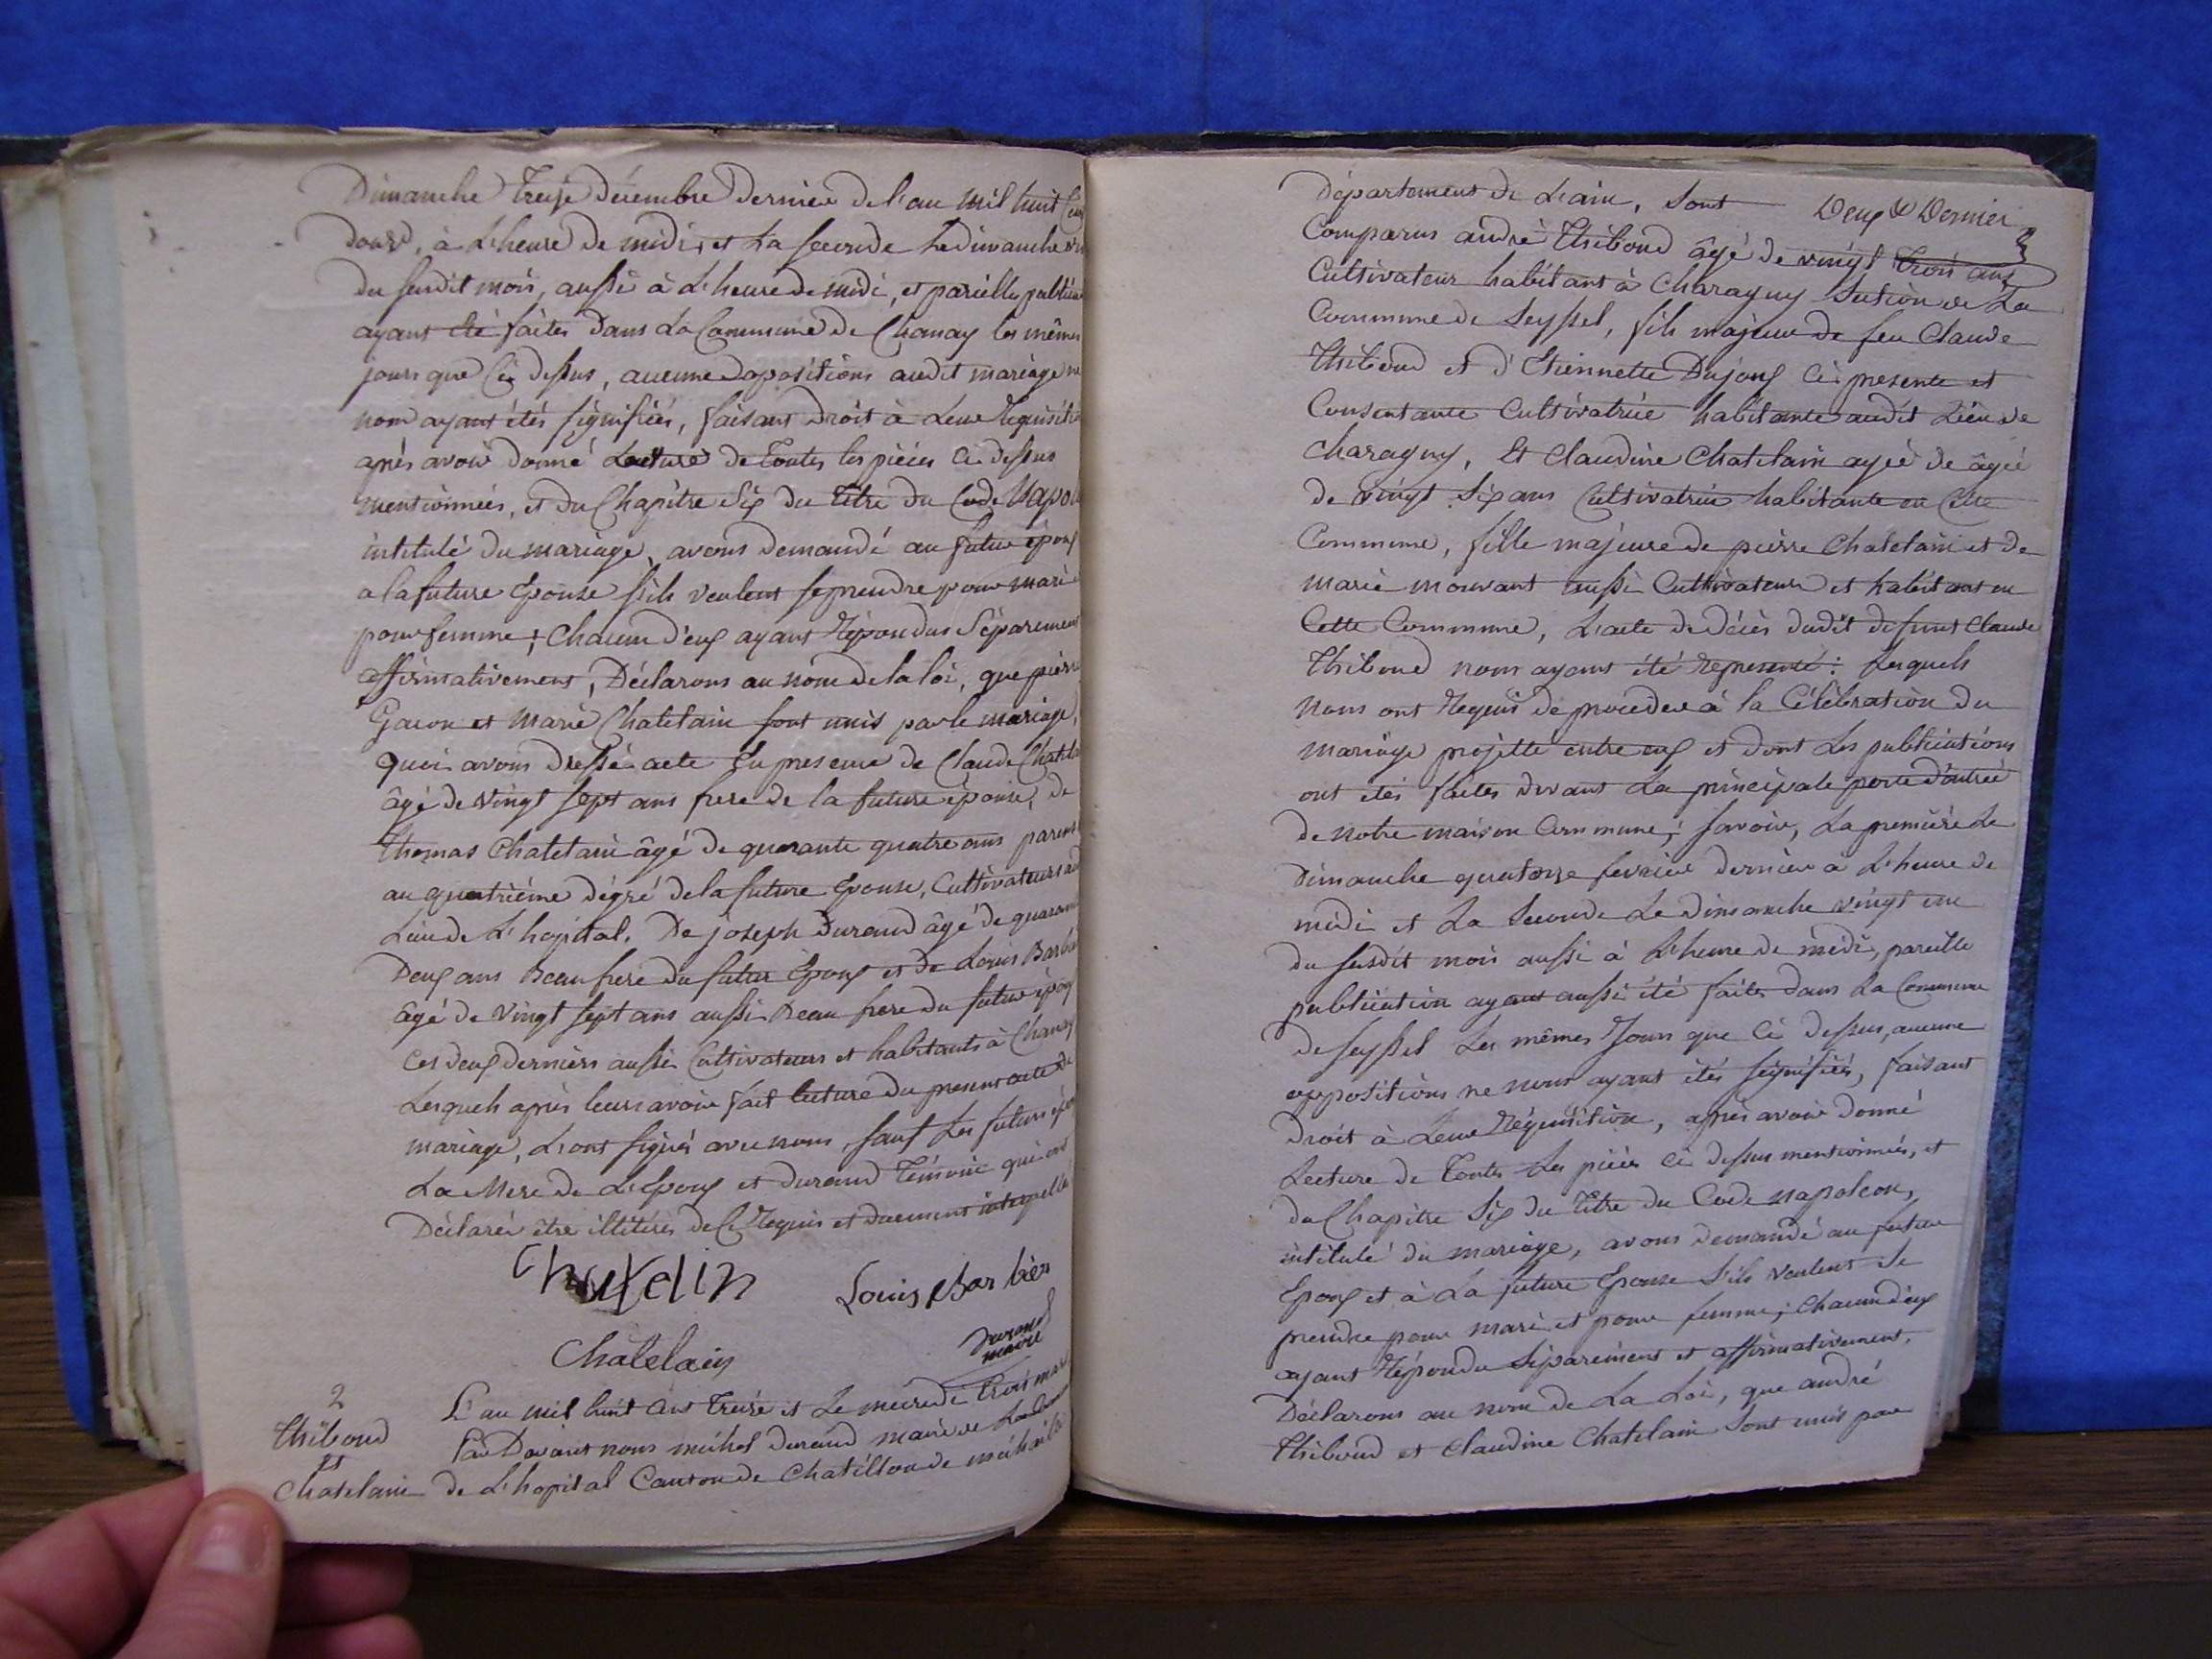 Dimanche treise décembre dernier de l'an mil huit Cent
douse, à L'heure de midi, et La seconde Le dimanche
du susdit mois, aussi à L'heure de midi, et pareille
ayant été faites dans La Commune de Chanay les mêmes
jours que Ci dessus, aucune opositions audit mariage ne
nous ayant étés signifiées, faisant droit à Leur Requisition
après avoir donné Lecture de toutes les pièces Ci dessus
mentionnées, et du Chapitre Six du titre du Code
intitulé du mariage, avons demandé au futur époux
a la future Epouse S'ils veulent se prendre pour mari
pour femme; Chacun d'eux ayant Répondus Séparement
affirmativement, Déclarons au nom de la loi, que pierre
Gacon et Marie Chatelain sont unis par le mariage,
quoi avons dressé acte En presence de Claude
âgé de vingt sept ans frere de la future épouse, de
thomas Chatelain âgé de quarante quatre ans parent
au quatrième dégré de la future Epouse, Cultivateurs
Lieu de L'hopital. De joseph durand âgé de quarante
Deux ans Beau frere du futur Epoux et de Louis
âgé de vingt sept ans aussi Beau frere du futur époux
Ces deux derniers aussi Cultivateurs et habitants à
Lesquels après leurs avoir fait lecture du present acte de
mariage, L'ont signés avec nous, sauf Les futurs
La Mere de L'Epoux et durand Témoin qui ont
Déclarés être illitérés de Ce Requis et duement
Chatelain Louis Barbier
Chatelain durand maire
2
thiboud
et
Chatelain
L'an mil huit Cent treise et Le mecredi trois mars
Par Devant nous michel durand maire de La
de L'hopital Canton de Chatillon de
Deux & Dernier
Département de L'ain, Sont
Comparus andré thiboud âgé de vingt trois ans
Cultivateur habitant à Charagny Section de La
Commune de Seyssel, fils majeur de feu Claude
thiboud et d'Etiennette Dujoux Ci presente et
Consentante Cultivatrice habitante audit Lieu de
Charagny, Et Claudine Chatelain agée de âgée
de vingt Six ans Cultivatrice habitante en Cette
Commune, fille majeure de pierre Chatelain et de
marie aussi Cultivateurs et habitant en
Cette Commune, L'acte de décès dudit défunt Claude
thiboud nous ayant été représenté: Lesquels
Nous ont Requis de procéder à la Célébration du
mariage projetté entre eux et dont Les publications
ont étés faites devant La principale porte d'entrée
de Notre maison Commune; savoir, La première Le
Dimanche quatorse fevrier dernier à L'heure de
midi et La Seconde Le dimanche vingt un
du susdit mois aussi à L'heure de midi, pareille
publication ayant aussi été faites dans La Commune
de Seyssel Les mêmes Jours que Ci dessus, aucune
oppositions ne nous ayant étés signifiées, faisant
Droit à Leur Réquisition, après avoir donné
Lecture de toutes Les pièces Ci dessus mentionnées, et
du Chapitre Six du titre du Code napoleon,
intitulé du mariage, avons demandé au futur
Epoux et à La future Epouse S'ils veulent Se
prendre pour mari et pour femme; Chacun d'eux
ayant Répondu Séparément et affirmativement,
Déclarons au nom de La Loi, que andré
thiboud et Claudine Chatelain Sont unis par